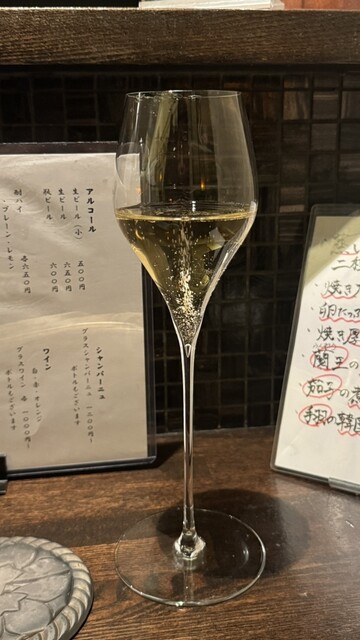 アルコール
生ビール(小) 五〇〇円
生ビール 六五〇円
瓶ビール 六〇〇円
酎ハイ
プレーン・レモン 各六五〇円
シャンパーニュ
グラスシャンパーニュ 一二〇〇円~
ボトルもございます
ワイン
白・赤・オレンジ
グラスワイン 各 一〇〇〇円~
ボトルもございます
・焼き
・卵たっぷ
・焼き厚
・闇王の
・茄子の
・手羽の韓国